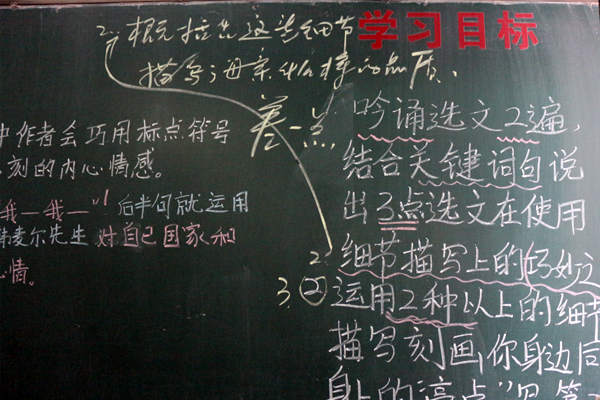 学习目标
2. 概括出这些细节
描写母亲什么样的品质.
差一点
中作者会巧用标点符号
刻的内心情感。
我—我—”后半句就运用
弗麦尔先生对自己国家和
心情。
吟诵选文2遍,
结合关键词句说
出3点选文在使用
2. 细节描写上的巧妙之
3. ② 运用2种以上的细节
描写刻画,你身边同
身上的“亮点”